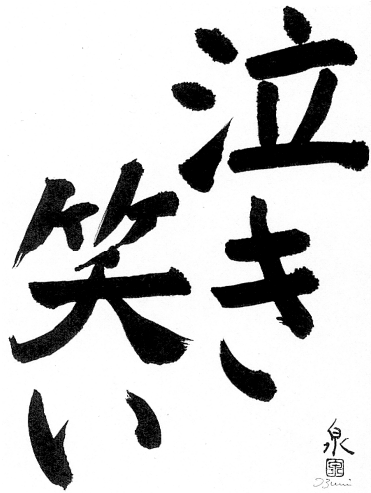 泣き
笑い
泉
泉
Izumi